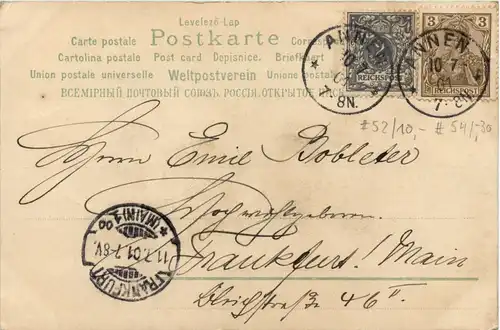 Levelező-Lap
Carte postale Postkarte Corresp
Cartolina postale Post card Dopisnice. Briefkaart
Union postale universelle Weltpostverein Unione postale
ВСЕМІРНЫЙ ПОЧТОВЫЙ СОЮЗЪ. РОССІЯ. ОТКРЫТОЕ ПИС
REICHSPOST
3 3
REICHSPOST
* ANNEN *
7-8N.
ANNEN
10 7
7-8N.
#52/10,- #54/,30
Herrn Emil Bobleter
Hochwohlgeboren.
Frankfurt/Main
Bleichstraße 46 II
* (MAIN) 1 *
11.7.01.7-8V.
FRANKFURT